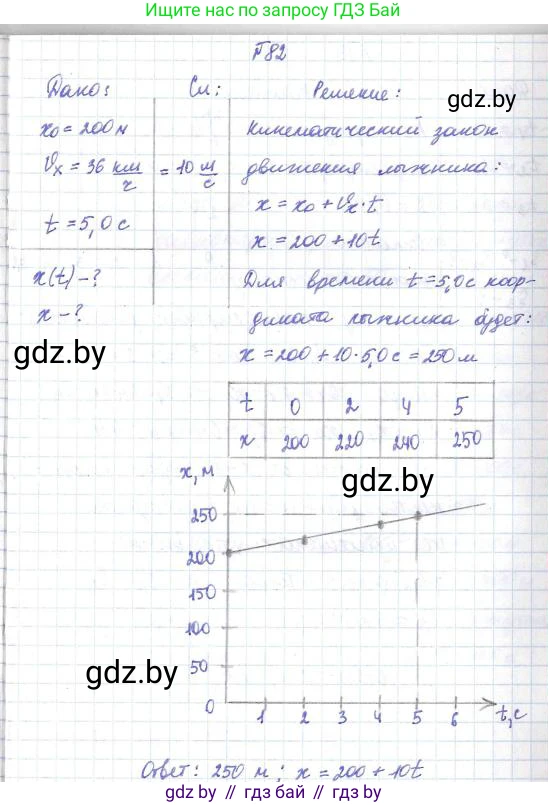 Ищите нас по запросу ГДЗ БАЙ
82
Дано: Си: Решение:
gdz.by
x₀ = 200 м Кинематический закон
Vx = 36 км/ч = 10 м/с движения лыжника:
x = x₀ + Vx·t
t = 5,0 с
x = 200 + 10t
x(t) - ? Для времени t = 5,0 с коор-
x - ? дината лыжника будет:
gdz.by
x = 200 + 10·5,0 с = 250 м
t 0 2 4 5
x 200 220 240 250
x, м
gdz.by
250
200
150
100
50
gdz.by
0 1 2 3 4 5 6 t, с
Ответ: 250 м; x = 200 + 10t
gdz.by // gdz.by // gdz.by